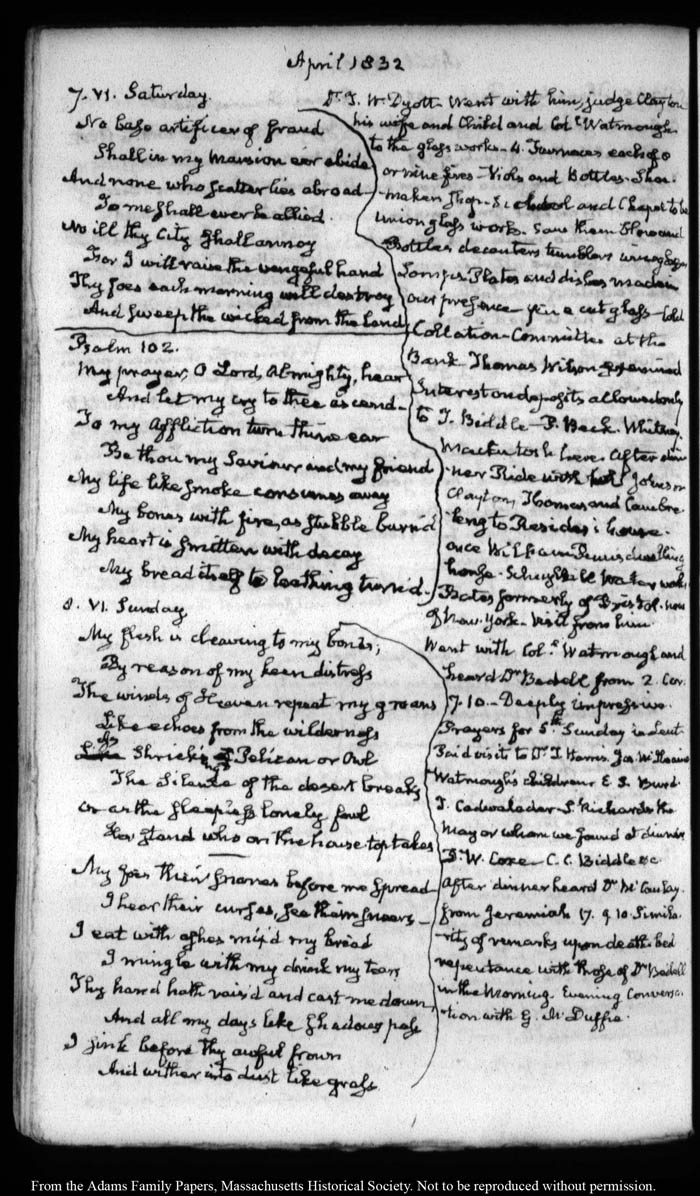 April 1832
7. VI. Saturday.
No base artificer of fraud
Shall in my Mansion ever abide
And none who scatter lies abroad
To me shall ever be allied.
No ill thy City shall annoy
For I will raise the vengeful hand
Thy foes each morning will destroy
And sweep the wicked from the Land
Psalm 102.
My prayer, O Lord, Almighty, hear
And let my cry to thee ascend
To my affliction turn thine ear
Be thou my Saviour and my friend
My life like smoke consumes away
My bones with fire, as stubble burn'd
My heart is smitten with decay
My bread itself to loathing turn'd.
8. VI. Sunday
My flesh is cleaving to my bones;
By reason of my keen distress
The winds of Heaven repeat my groans
Like echoes from the wilderness
As Shrieks Pelican or Owl
The Silence of the desert breaks
or as the sleepless lonely fowl
stand who on the house top takes
My foes their snares before me spread
I hear their curses, see their sneers
I eat with ashes mix'd my bread
I mingle with my drink my tears
Thy hand hath rais'd and cast me down
And all my days like shadows pass
I sink before thy awful frown
And wither into dust like grass
Dr. T. W. Dyott. Went with him, judge Clayton
his wife and Child and Col. Watmough
to the glass works. 4 Furnaces each of 8
or nine fires. Viols and Bottles. Shoe
maker Shop. School and Chapel to be
Union glass works. Saw them blow and
Bottles decanters tumblers
Lamps Plates and dishes made in
our presence fine cut glass. Cold
Collation. Committee at the
Bank Thomas Wilson examined
Interest on deposits allowed only
to T. Biddle. P. Beck. Whitney.
Mackintosh here. After din
ner Ride with Johnson
Clayton, Thomas and Cambre
leng to house.
once William dwelling
house. Schuylkill Water works
Bates formerly of now
of New-York. Visit from him.
Went with Col. Watmough and
heard Dr. Bedell from 2. Cor.
7. 10. Deeply impressive.
Prayers for 5th Sunday in Lent.
Paid visit to Dr. T. Harris
Watmough's children E. S. Burd.
T. Cadwalader. S. Richards the
Mayor whom we found at dinner
Dr. W. Coxe. C. C. Biddle &c
After dinner heard Dr.
from Jeremiah 17. 9 10. Simila
rity of remarks upon death bed
repentance with those of Dr. Bedell
in the Morning. Evening Conversa
tion with G. McDuffie.
From the Adams Family Papers, Massachusetts Historical Society. Not to be reproduced without permission.